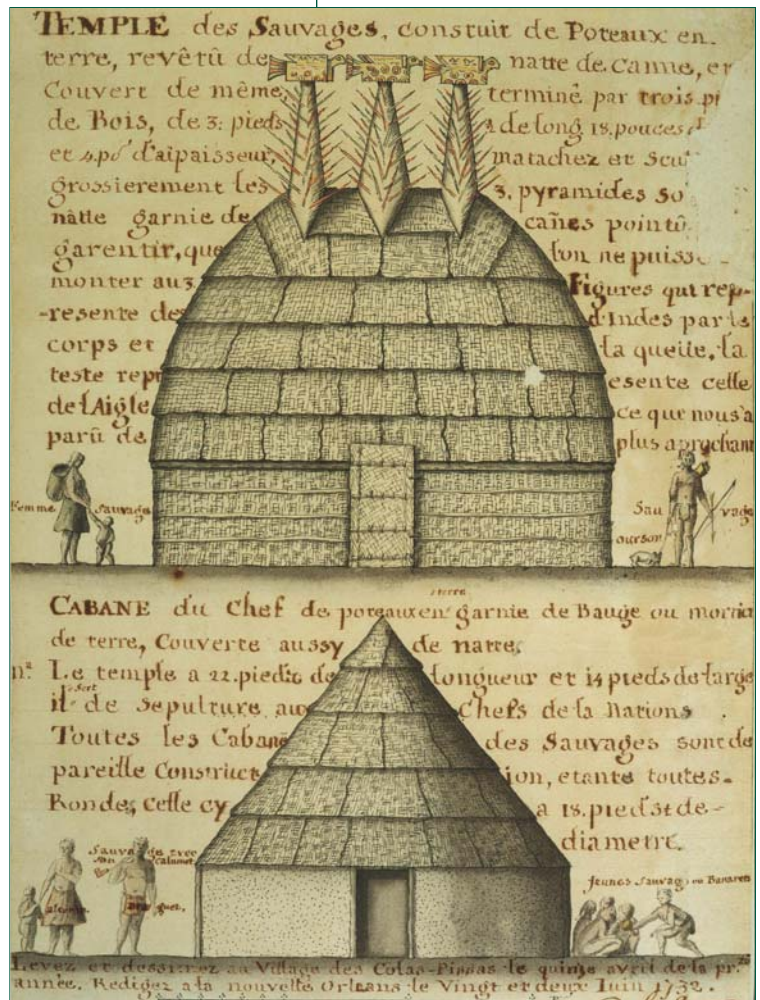 TEMPLE des Sauvages, construit de Poteaux en
terre, revêtû de natte de Canne, et
Couvert de même, terminé par trois pi
de Bois, de 3: pieds de long 18. pouces
et 4. po d'aipaisseur, matachez et Scu
grossierement les 3. pyramides so
nâtte garnie de cañes pointû
garentir, que l'on ne puisse
monter au 3. Figures qui rep-
-resente des d'Indes par le
corps et la queüe, la
teste repr esente celle
de l'Aigle ce que nous a
parû de plus aprochant
Femme Sauvage
Sau vage
ourson
terre
CABANE du Chef de poteaux en garnie de Bauge ou mortier
de terre, Couverte aussy de natte,
na. Le temple a 22. pieds de Longueur et 14 pieds de large
il Sert de Sepulture aux Chefs de la Nations
Toutes les Cabane des Sauvages sont de
pareille Construct ion, etante toutes-
Rondes, Celle cy a 18. pieds de-
diametre.
Sauvage avec
son Calumet
Jeunes Sauvag
Levez et dessinez au Village des Colas-Pissas le quinze avril de la pr.
année. Redigez a la nouvelle Orleans le Vingt et deux Juin 1732.